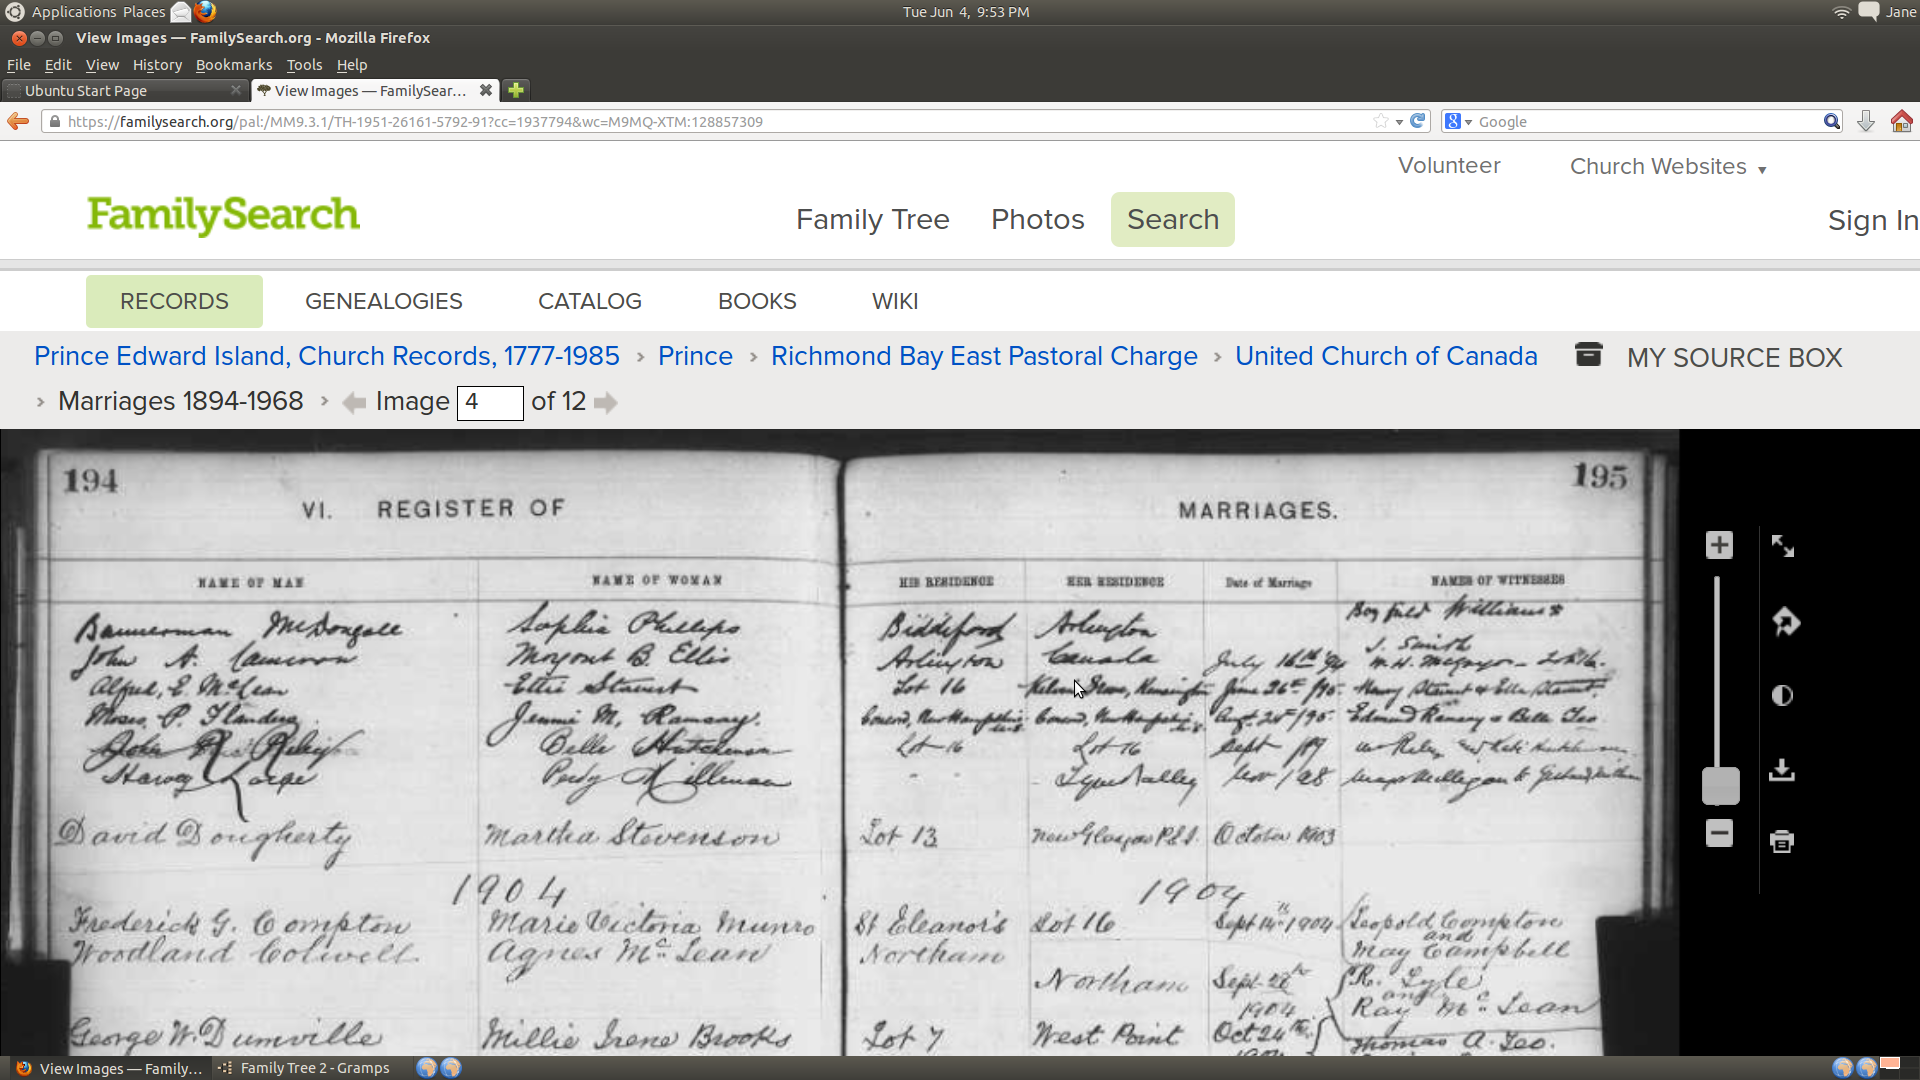 Applications Places Tue Jun 4, 9:53 PM Jane
View Images — FamilySearch.org - Mozilla Firefox
File Edit View History Bookmarks Tools Help
Ubuntu Start Page View Images — FamilySear...
https://familysearch.org/pal:/MM9.3.1/TH-1951-26161-5792-91?cc=1937794&wc=M9MQ-XTM:128857309 Google
Volunteer Church Websites
FamilySearch Family Tree Photos Search Sign In
RECORDS GENEALOGIES CATALOG BOOKS WIKI
Prince Edward Island, Church Records, 1777-1985 › Prince › Richmond Bay East Pastoral Charge › United Church of Canada MY SOURCE BOX
› Marriages 1894-1968 › Image 4 of 12
194 195
VI. REGISTER OF MARRIAGES.
NAME OF MAN NAME OF WOMAN HIS RESIDENCE HER RESIDENCE Date of Marriage NAMES OF WITNESSES
Bannerman McDougall Sophia Phillips Biddeford Arlington Williams
J. Smith
John A. Cameron B. Ellis Arlington Canada July 16th
Alfred E. McLean Ettie Stewart Lot 16 Kensington June 26th /95
Moses P. Flanders Jennie M. Ramsay. Concord, New Hampshire Concord, New Hampshire Aug. 24th /95 Edmund Ramsay
John Belle Hutchinson Lot 16 Lot 16 Sept
Harvey Large Millman Tyne Valley Nov /98
David Dougherty Martha Stevenson Lot 13 New Glasgow P.E.I. October 1903
1904 1904
Frederick G. Compton Marie Victoria Munro St Eleanor's Lot 16 Sept 14th 1904 Leopold Compton
and
Woodland Colwell Agnes McLean Northam May Campbell
Northam Sept 28th R. Lyle
and
1904 Ray McLean
George W. Dumville Millie Irene Brooks Lot 7 West Point Oct 24th Thomas A. Geo.
View Images — Family... Family Tree 2 - Gramps